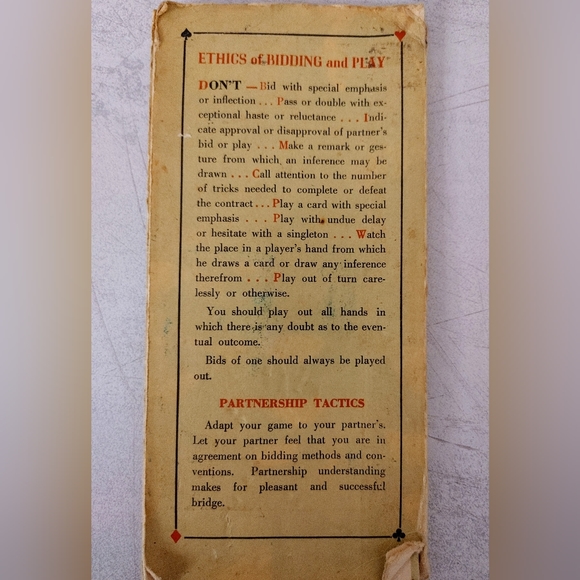 ETHICS of BIDDING and PLAY
DON'T — Bid with special emphasis
or inflection . . . Pass or double with ex-
ceptional haste or reluctance . . . Indi-
cate approval or disapproval of partner's
bid or play . . . Make a remark or ges-
ture from which an inference may be
drawn . . . Call attention to the number
of tricks needed to complete or defeat
the contract . . . Play a card with special
emphasis . . . Play with undue delay
or hesitate with a singleton . . . Watch
the place in a player's hand from which
he draws a card or draw any inference
therefrom . . . Play out of turn care-
lessly or otherwise.
You should play out all hands in
which there is any doubt as to the even-
tual outcome.
Bids of one should always be played
out.
PARTNERSHIP TACTICS
Adapt your game to your partner's.
Let your partner feel that you are in
agreement on bidding methods and con-
ventions. Partnership understanding
makes for pleasant and successful
bridge.